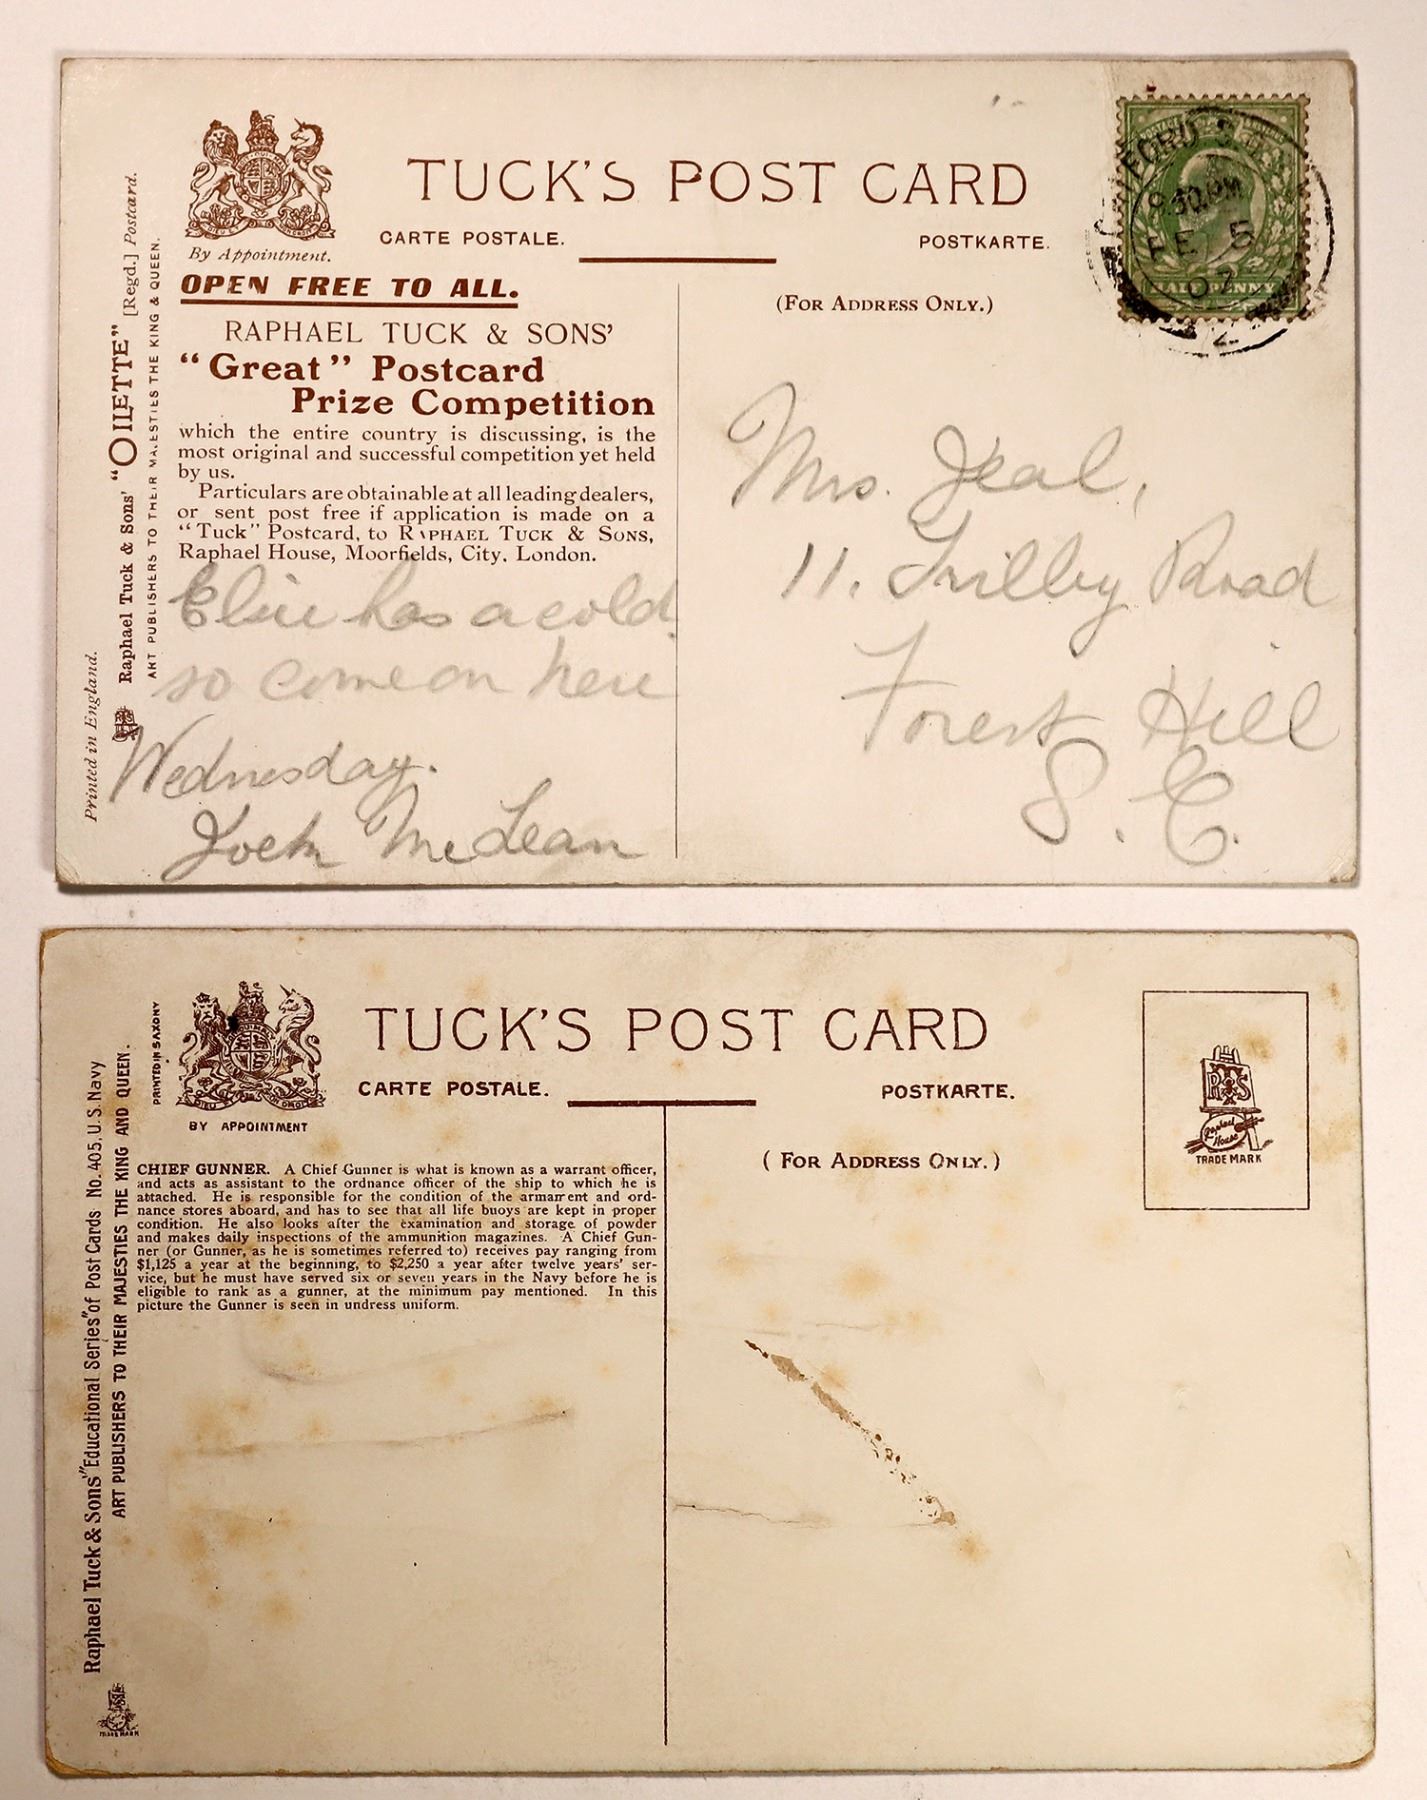 TUCK'S POST CARD
CARTE POSTALE.
POSTKARTE.
By Appointment.
OPEN FREE TO ALL.
RAPHAEL TUCK & SONS'
"Great" Postcard
Prize Competition
which the entire country is discussing, is the
most original and successful competition yet held
by us.
Particulars are obtainable at all leading dealers,
or sent post free if application is made on a
"Tuck" Postcard, to RAPHAEL TUCK & SONS,
Raphael House, Moorfields, City, London.
Elsie has a cold
so come on here
Wednesday.
McLean
Printed in England.
Raphael Tuck & Sons' "OILETTE" [Regd.] Postcard.
ART PUBLISHERS TO THEIR MAJESTIES THE KING & QUEEN.
(FOR ADDRESS ONLY.)
HALF PENNY
FE 5
Mrs. Jeal,
11. Trilby Road
Forest Hill
S.E.
TUCK'S POST CARD
CARTE POSTALE.
POSTKARTE.
BY APPOINTMENT
PRINTED IN SAXONY
CHIEF GUNNER. A Chief Gunner is what is known as a warrant officer,
and acts as assistant to the ordnance officer of the ship to which he is
attached. He is responsible for the condition of the armament and ord-
nance stores aboard, and has to see that all life buoys are kept in proper
condition. He also looks after the examination and storage of powder
and makes daily inspections of the ammunition magazines. A Chief Gun-
ner (or Gunner, as he is sometimes referred to) receives pay ranging from
$1,125 a year at the beginning, to $2,250 a year after twelve years' ser-
vice, but he must have served six or seven years in the Navy before he is
eligible to rank as a gunner, at the minimum pay mentioned. In this
picture the Gunner is seen in undress uniform.
Raphael Tuck & Sons' "Educational Series" of Post Cards No. 405. U.S. Navy
ART PUBLISHERS TO THEIR MAJESTIES THE KING AND QUEEN.
TRADE MARK
(FOR ADDRESS ONLY.)
R T & S
Raphael House
TRADE MARK